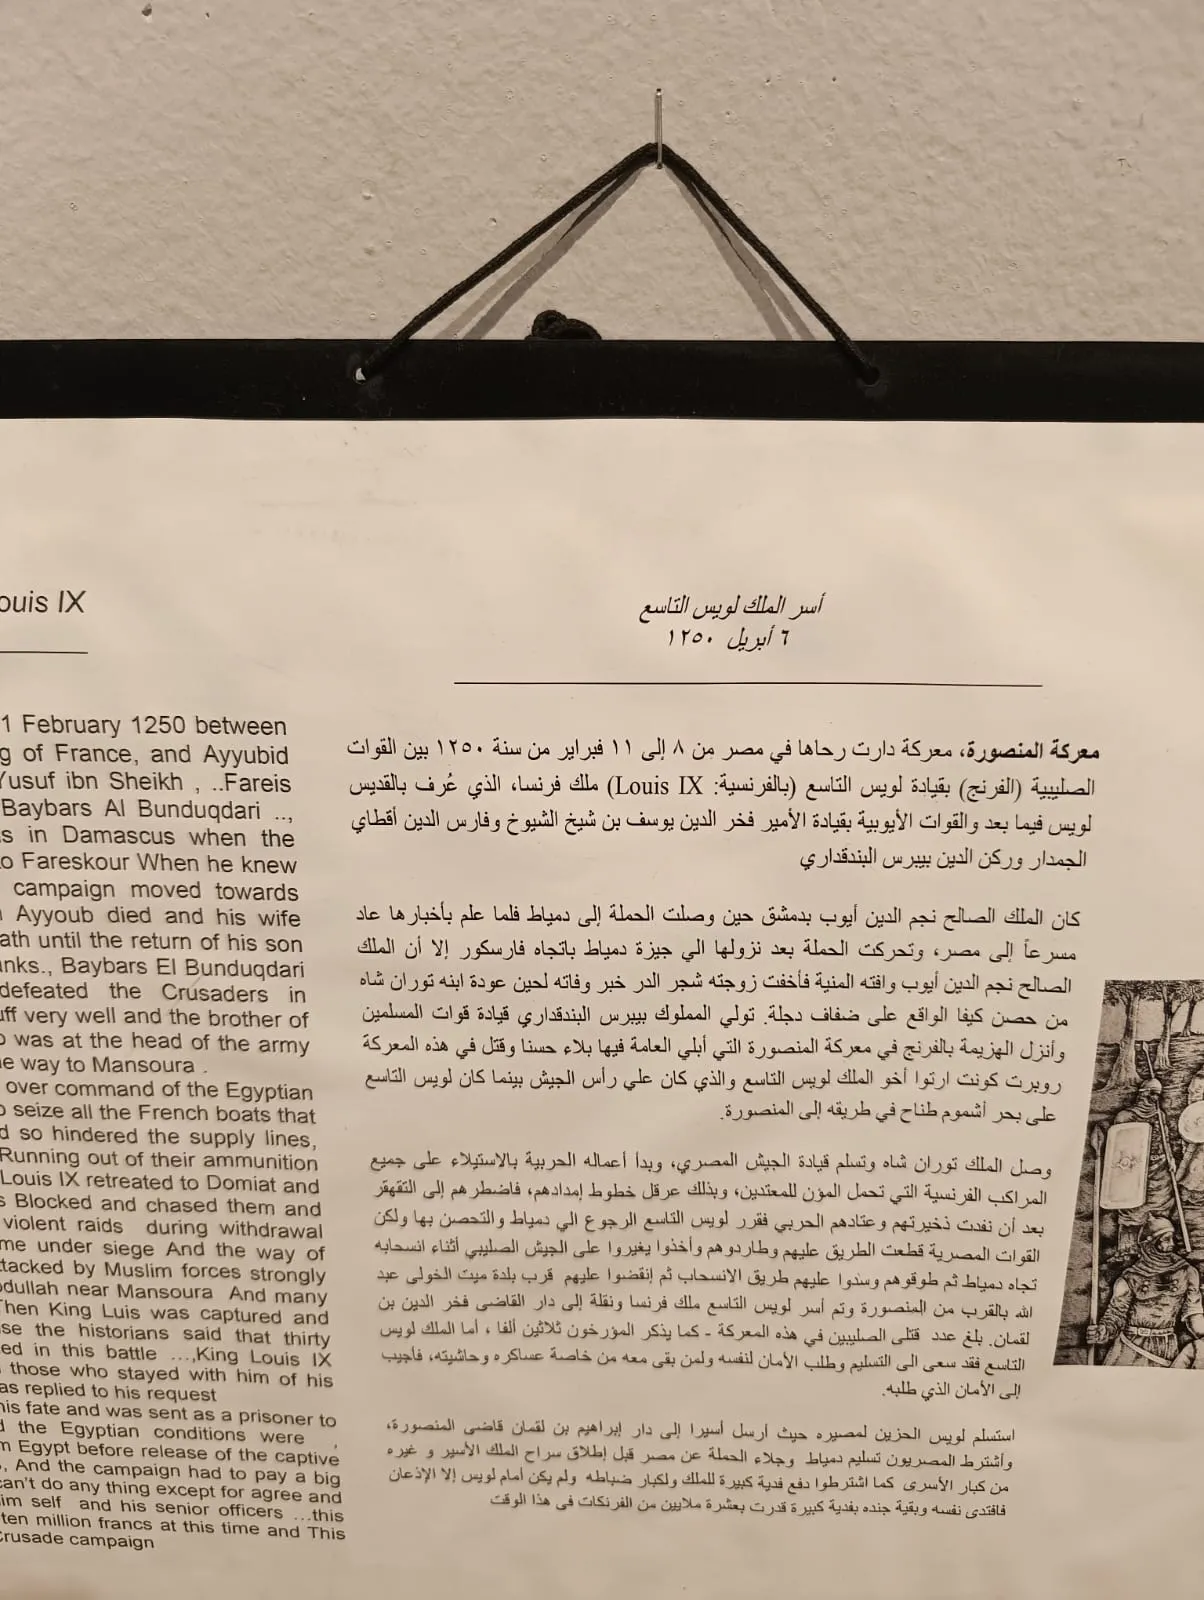 ouis IX
1 February 1250 between
g of France, and Ayyubid
Yusuf ibn Sheikh , ..Fareis
Baybars Al Bunduqdari ..,
as in Damascus when the
to Fareskour When he knew
campaign moved towards
Ayyoub died and his wife
ath until the return of his son
anks., Baybars El Bunduqdari
defeated the Crusaders in
uff very well and the brother of
o was at the head of the army
e way to Mansoura .
over command of the Egyptian
o seize all the French boats that
d so hindered the supply lines,
Running out of their ammunition
Louis IX retreated to Domiat and
s Blocked and chased them and
violent raids during withdrawal
me under siege And the way of
ttacked by Muslim forces strongly
bdullah near Mansoura And many
Then King Luis was captured and
se the historians said that thirty
ed in this battle ...,King Louis IX
those who stayed with him of his
as replied to his request
his fate and was sent as a prisoner to
d the Egyptian conditions were ,
m Egypt before release of the captive
, And the campaign had to pay a big
can't do any thing except for agree and
im self and his senior officers ...this
ten million francs at this time and This
Crusade campaign
أسر الملك لويس التاسع
٦ أبريل ١٢٥٠
معركة المنصورة، معركة دارت رحاها في مصر من ٨ إلى ١١ فبراير من سنة ١٢٥٠ بين القوات
الصليبية (الفرنج) بقيادة لويس التاسع (بالفرنسية: Louis IX) ملك فرنسا، الذي عُرف بالقديس
لويس فيما بعد والقوات الأيوبية بقيادة الأمير فخر الدين يوسف بن شيخ الشيوخ وفارس الدين أقطاي
الجمدار وركن الدين بيبرس البندقداري
كان الملك الصالح نجم الدين أيوب بدمشق حين وصلت الحملة إلى دمياط فلما علم بأخبارها عاد
مسرعاً إلى مصر، وتحركت الحملة بعد نزولها الي جيزة دمياط باتجاه فارسكور إلا أن الملك
الصالح نجم الدين أيوب وافته المنية فأخفت زوجته شجر الدر خبر وفاته لحين عودة ابنه توران شاه
من حصن كيفا الواقع على ضفاف دجلة. تولي المملوك بيبرس البندقداري قيادة قوات المسلمين
وأنزل الهزيمة بالفرنج في معركة المنصورة التي أبلي العامة فيها بلاء حسنا وقتل في هذه المعركة
روبرت كونت ارتوا أخو الملك لويس التاسع والذي كان علي رأس الجيش بينما كان لويس التاسع
على بحر أشموم طناح في طريقه إلى المنصورة.
وصل الملك توران شاه وتسلم قيادة الجيش المصري، وبدأ أعماله الحربية بالاستيلاء على جميع
المراكب الفرنسية التي تحمل المؤن للمعتدين، وبذلك عرقل خطوط إمدادهم، فاضطرهم إلى التقهقر
بعد أن نفدت ذخيرتهم وعتادهم الحربي فقرر لويس التاسع الرجوع الي دمياط والتحصن بها ولكن
القوات المصرية قطعت الطريق عليهم وطاردوهم وأخذوا يغيروا على الجيش الصليبي أثناء انسحابه
تجاه دمياط ثم طوقوهم وسدوا عليهم طريق الانسحاب ثم إنقضوا عليهم قرب بلدة ميت الخولى عبد
الله بالقرب من المنصورة وتم أسر لويس التاسع ملك فرنسا ونقلة إلى دار القاضى فخر الدين بن
لقمان. بلغ عدد قتلى الصليبين في هذه المعركة - كما يذكر المؤرخون ثلاثين ألفا ، أما الملك لويس
التاسع فقد سعى الى التسليم وطلب الأمان لنفسه ولمن بقى معه من خاصة عساكره وحاشيته، فأجيب
إلى الأمان الذي طلبه.
استسلم لويس الحزين لمصيره حيث أرسل أسيرا إلى دار إبراهيم بن لقمان قاضى المنصورة،
وأشترط المصريون تسليم دمياط وجلاء الحملة عن مصر قبل إطلاق سراح الملك الأسير و غيره
من كبار الأسرى كما اشترطوا دفع فدية كبيرة للملك ولكبار ضباطه ولم يكن أمام لويس إلا الإذعان
فافتدى نفسه وبقية جنده بفدية كبيرة قدرت بعشرة ملايين من الفرنكات في هذا الوقت